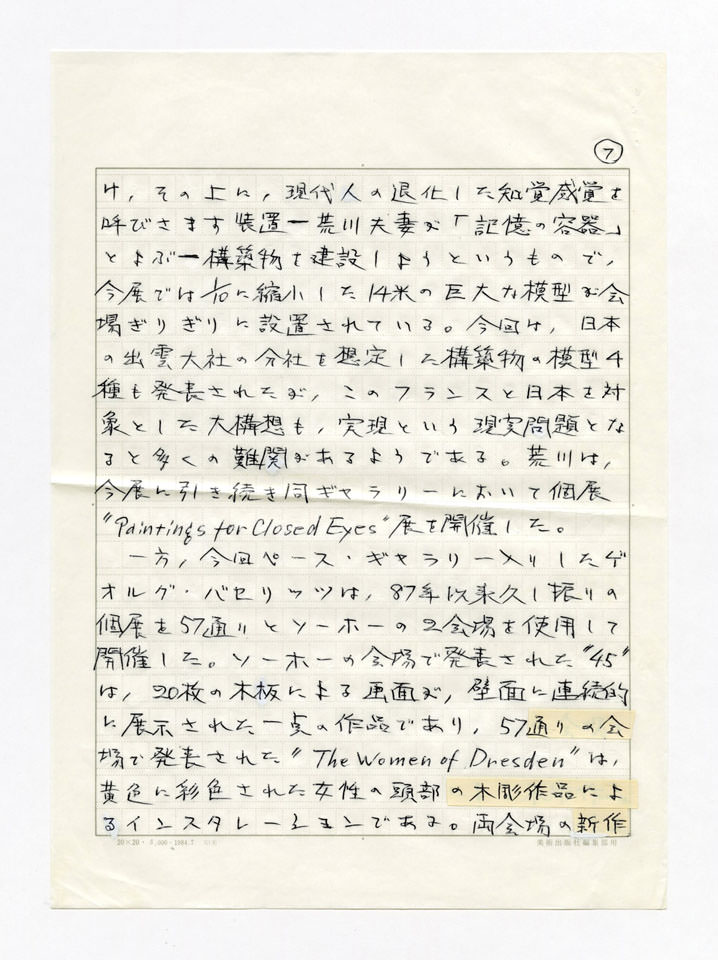 7
け，その上に，現代人の退化した知覚感覚を
呼びさます装置—荒川夫妻が「記憶の容器」
とよぶ一構築物を建設しようというもので，
今展では1/10に縮小した14米の巨大な模型が会
場ぎりぎりに設置されている。今回は，日本
の出雲大社の分社を想定した構築物の模型4
種も発表されたが，このフランスと日本を対
象とした大構想も，実現という現実問題とな
ると多くの難関があるようである。荒川は，
今展に引き続き同ギャラリーにおいて個展
"Paintings for Closed Eyes"展を開催した。
一方，今回ペース・ギャラリー入りしたゲ
オルグ・バセリッツは，87年以来久し振りの
個展を57通りとソーホーの2会場を使用して
開催した。ソーホーの会場で発表された"45"
は，20枚の木板による画面が，壁面に連続的
に展示された一点の作品であり，57通りの会
場で発表された"The Women of Dresden"は，
黄色に彩色された女性の頭部の木彫作品によ
るインスタレーションである。両会場の新作
20×20・5,000・1984.7
美術出版社編集部用